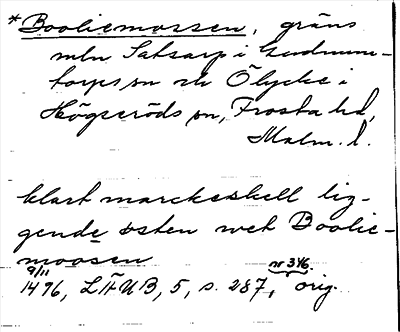 *Booliemossen, gräns
mln Satsarp i Gudmun-
torps sn och Ölycke i
Högseröds sn, Frosta hd,
Malm. l.
klart marckeskell lig-
gende østen wet Boolie-
moosen
9/11 nr 346.
1496, LÄUB, 5, s. 287, orig.